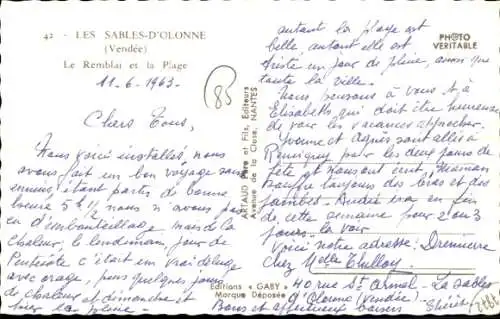 42 - LES SABLES-D'OLONNE
(Vendée)
Le Remblai et la Plage
11.6.1963.
85
Chers Tous,
Nous voici installés, nous
avons fait un bon voyage sans
ennuis, étant partis de bonne
heure 5 h 1/2 nous n'avons pas
eu d'embouteillage mais de la
chaleur, le lendemain, jour de
Pentecôte c'était un vrai déluge
avec orage, puis quelques jours
de chaleur et dimanche et
hier la pluie.
ARTAUD Père et Fils, Editeurs
Avenue de la Close, NANTES
Editions "GABY"
Marque Déposée
PHOTO
VERITABLE
autant la plage est
belle, autant elle est
triste un jour de pluie, ainsi que
toute la ville.
Nous pensons à vous et à
Elisabeth qui doit être heureuse
de voir les vacances approcher.
Yvonne et Agnès sont allés à
pour les deux jours de
fête et nous ont écrit, Maman
souffre toujours des bras et des
jambes. André ira en fin
de cette semaine pour 2 ou 3
jours la voir
Voici notre adresse:
chez Melle
40 rue St Armel - La Sables
d'Olonne (Vendée)
Bons et affectueux baisers